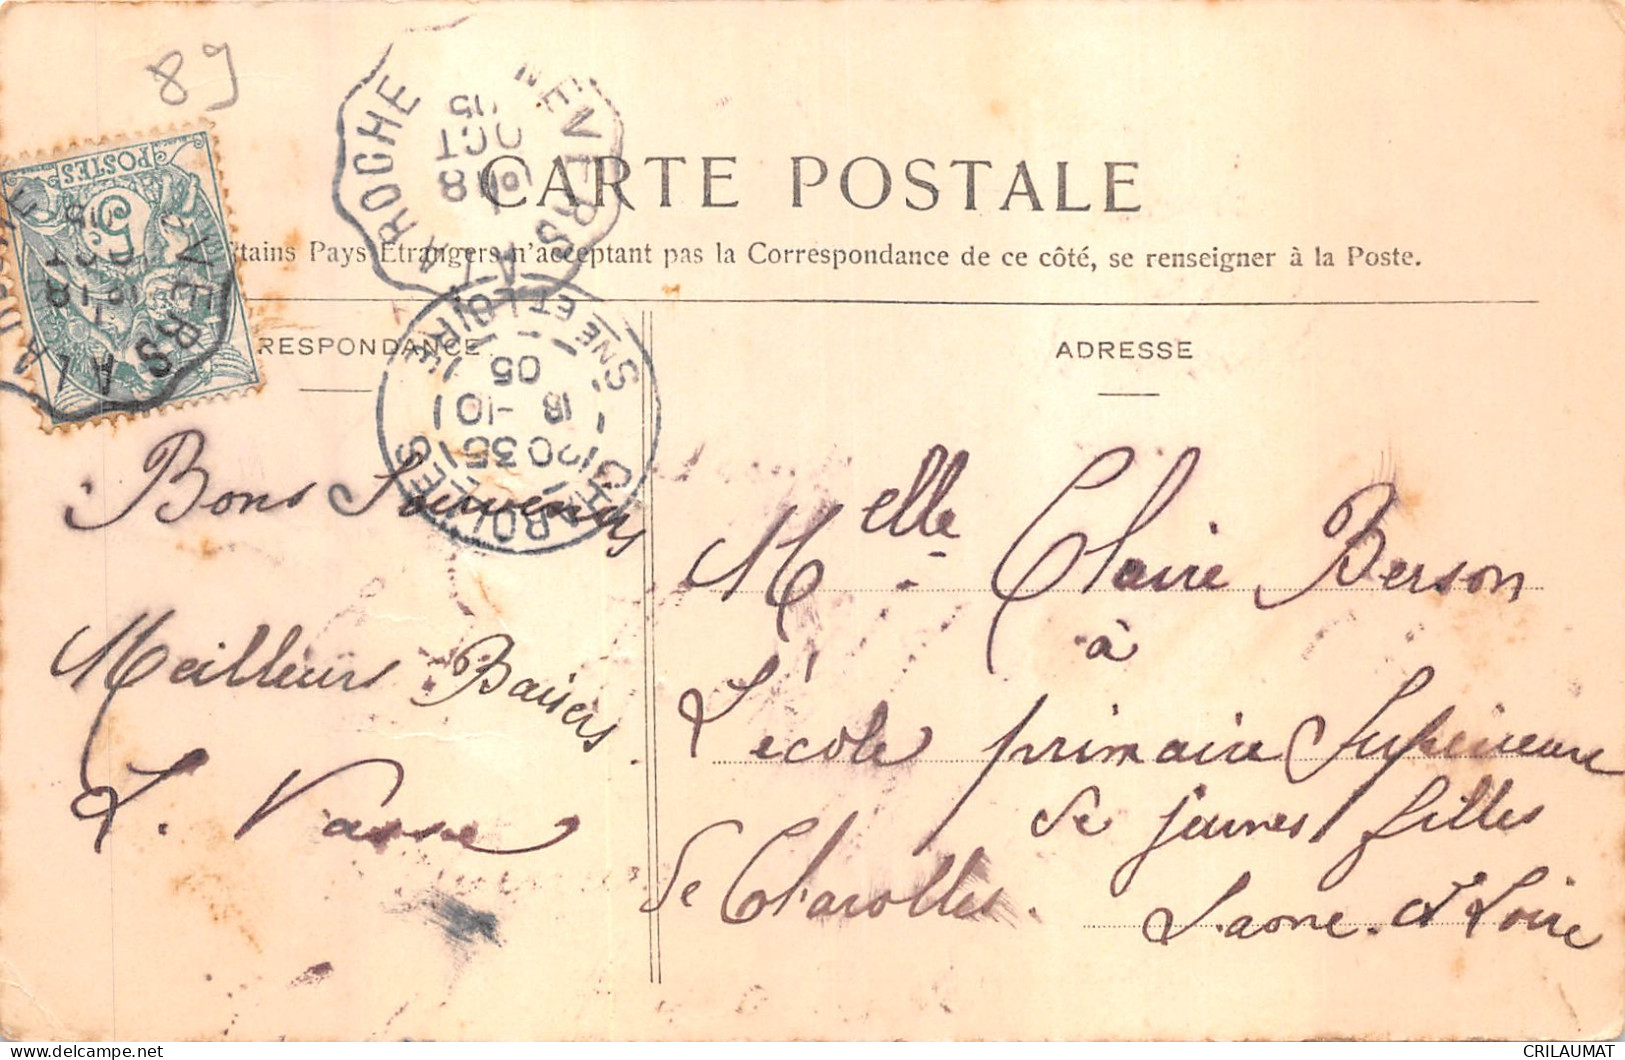 89
POSTES
5c
NEVERS A LA ROCHE
18
OCT
CARTE POSTALE
tains Pays Etrangers n'acceptant pas la Correspondance de ce côté, se renseigner à la Poste.
RESPONDANCE
ADRESSE
CHAROLLES
20 35
18 -10
05
SNE ET LOIRE
Bons Souvenirs
Meilleurs Baisers.
L. Vasse
Melle Claire Berson
à
L'école primaire Supérieure
de jeunes filles
de Charolles.
Saone. et Loire
CRILAUMAT